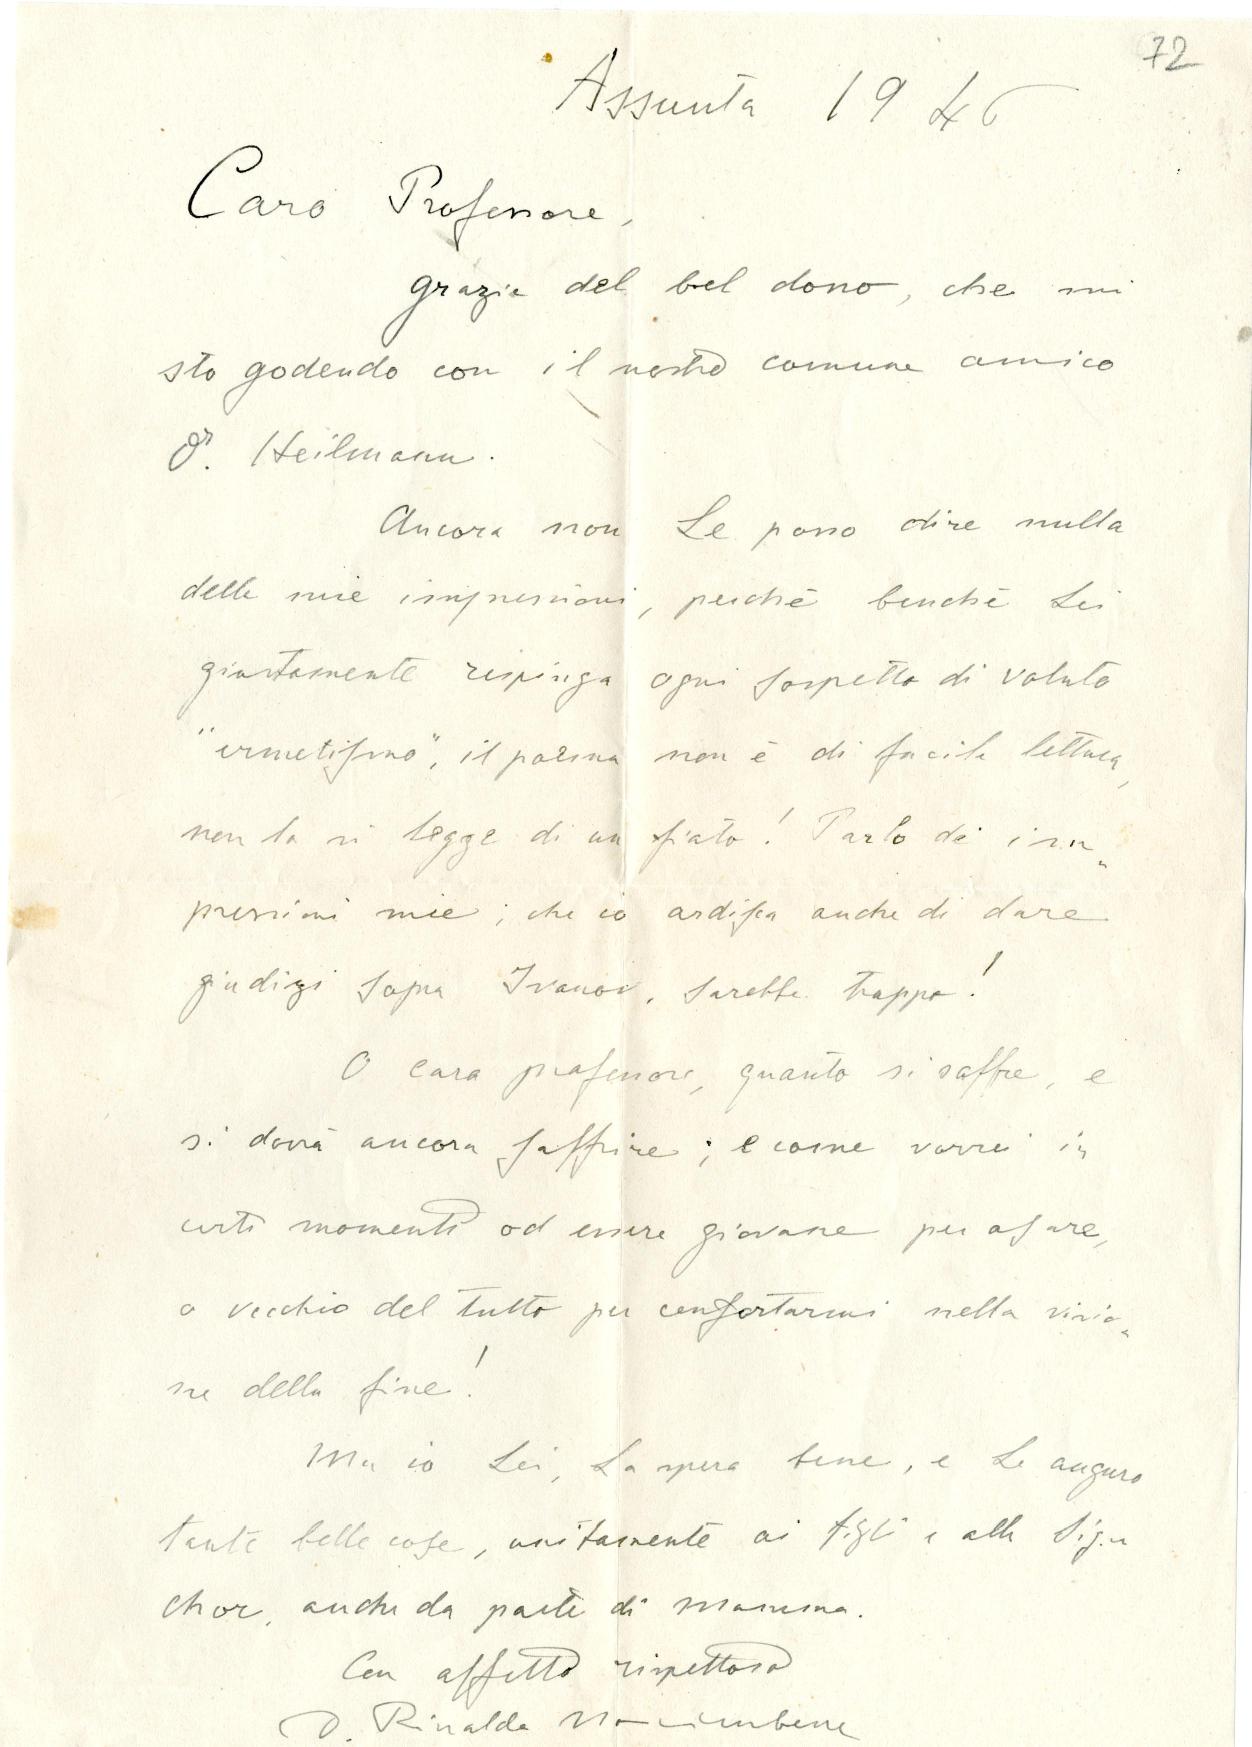 72
Assunta 1946
Caro Professore,
grazie del bel dono, che mi
sto godendo con il nostro comune amico
Dr. Heilmann.
Ancora non Le posso dire nulla
delle mie impressioni, perchè benchè Lei
giustamente respinga ogni sospetto di voluto
"ermetismo", il poema non è di facile lettura,
non lo si legge di un fiato! Parlo di im„
pressioni mie; che io ardisca anche di dare
giudizi sopra Ivanov, sarebbe troppo!
O caro professore, quanto si soffre, e
si dovrà ancora soffrire; e come vorrei in
certi momenti od essere giovane per osare,
o vecchio del tutto per confortarmi nella visio„
ne della fine!
Ma io Lei, La spero bene, e Le auguro
tante belle cose, unitamente ai figli e alla Sig.a
Chor, anche da parte di mamma.
Con affetto rispettoso
D. Rinaldo Nascimbene